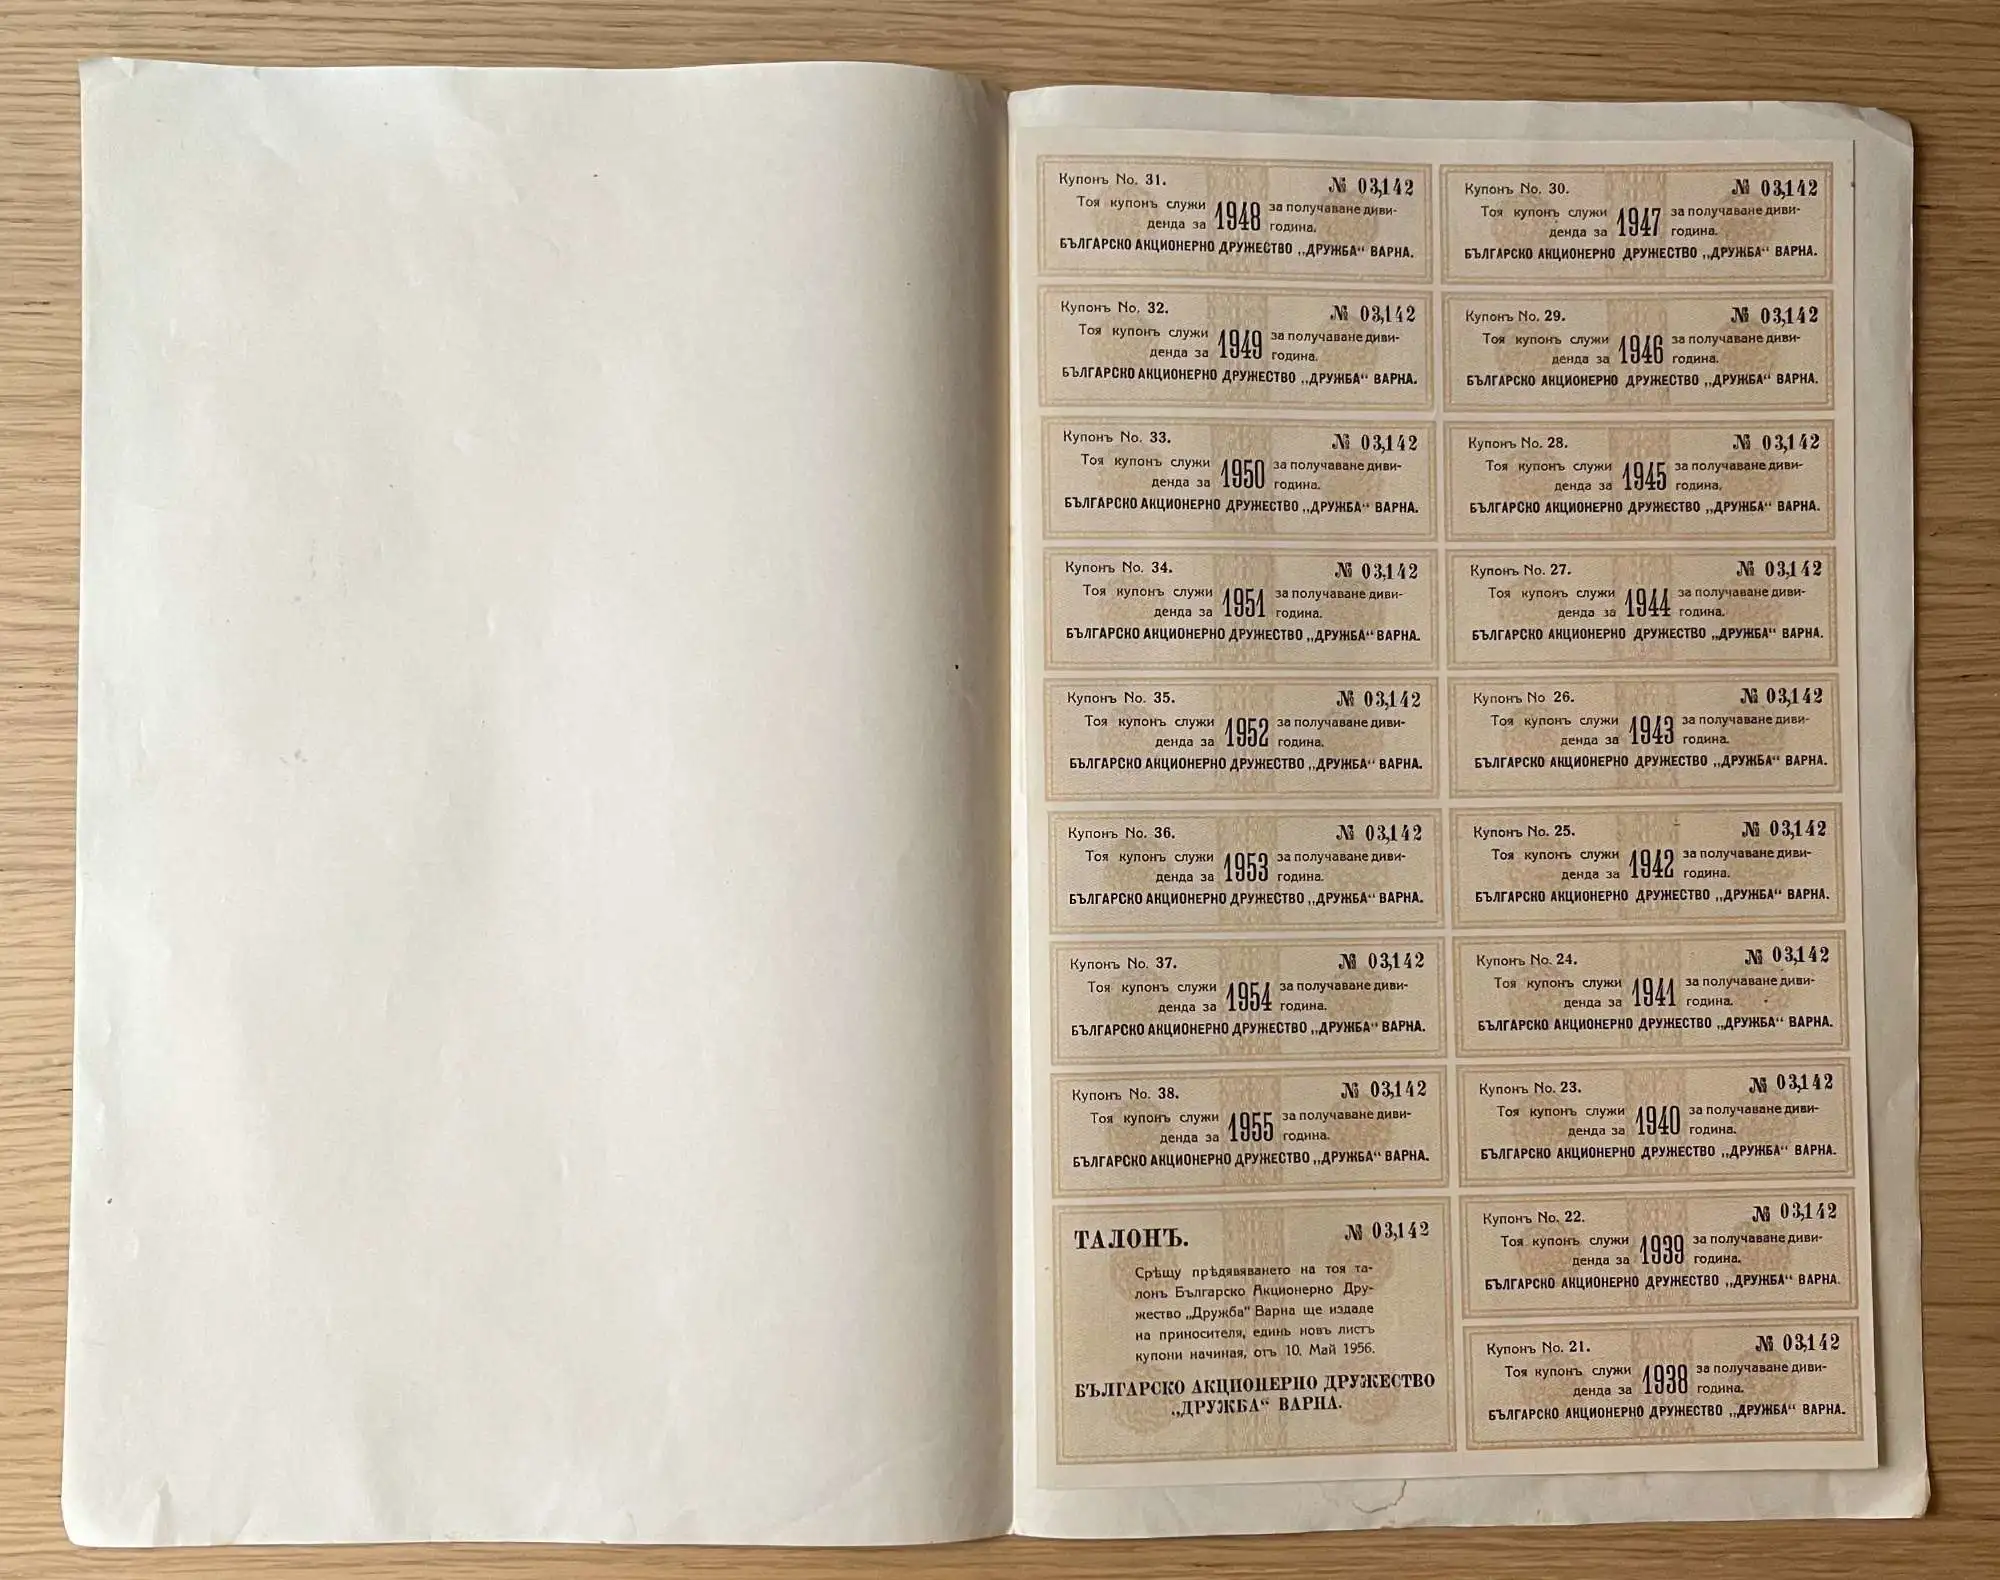 Купонъ No. 31. № 03,142
Тоя купонъ служи 1948 за получаване диви-
денда за година.
БЪЛГАРСКО АКЦИОНЕРНО ДРУЖЕСТВО „ДРУЖБА“ ВАРНА.
Купонъ No. 32. № 03,142
Тоя купонъ служи 1949 за получаване диви-
денда за година.
БЪЛГАРСКО АКЦИОНЕРНО ДРУЖЕСТВО „ДРУЖБА“ ВАРНА.
Купонъ No. 33. № 03,142
Тоя купонъ служи 1950 за получаване диви-
денда за година.
БЪЛГАРСКО АКЦИОНЕРНО ДРУЖЕСТВО „ДРУЖБА“ ВАРНА.
Купонъ No. 34. № 03,142
Тоя купонъ служи 1951 за получаване диви-
денда за година.
БЪЛГАРСКО АКЦИОНЕРНО ДРУЖЕСТВО „ДРУЖБА“ ВАРНА.
Купонъ No. 35. № 03,142
Тоя купонъ служи 1952 за получаване диви-
денда за година.
БЪЛГАРСКО АКЦИОНЕРНО ДРУЖЕСТВО „ДРУЖБА“ ВАРНА.
Купонъ No. 36. № 03,142
Тоя купонъ служи 1953 за получаване диви-
денда за година.
БЪЛГАРСКО АКЦИОНЕРНО ДРУЖЕСТВО „ДРУЖБА“ ВАРНА.
Купонъ No. 37. № 03,142
Тоя купонъ служи 1954 за получаване диви-
денда за година.
БЪЛГАРСКО АКЦИОНЕРНО ДРУЖЕСТВО „ДРУЖБА“ ВАРНА.
Купонъ No. 38. № 03,142
Тоя купонъ служи 1955 за получаване диви-
денда за година.
БЪЛГАРСКО АКЦИОНЕРНО ДРУЖЕСТВО „ДРУЖБА“ ВАРНА.
ТАЛОНЪ. № 03,142
Срѣщу прѣдявяването на тоя та-
лонъ Българско Акционерно Дру-
жество „Дружба“ Варна ще издаде
на приносителя, единъ новъ листъ
купони начиная, отъ 10. Май 1956.
БЪЛГАРСКО АКЦИОНЕРНО ДРУЖЕСТВО
„ДРУЖБА“ ВАРНА.
Купонъ No. 30. № 03,142
Тоя купонъ служи 1947 за получаване диви-
денда за година.
БЪЛГАРСКО АКЦИОНЕРНО ДРУЖЕСТВО „ДРУЖБА“ ВАРНА.
Купонъ No. 29. № 03,142
Тоя купонъ служи 1946 за получаване диви-
денда за година.
БЪЛГАРСКО АКЦИОНЕРНО ДРУЖЕСТВО „ДРУЖБА“ ВАРНА.
Купонъ No. 28. № 03,142
Тоя купонъ служи 1945 за получаване диви-
денда за година.
БЪЛГАРСКО АКЦИОНЕРНО ДРУЖЕСТВО „ДРУЖБА“ ВАРНА.
Купонъ No. 27. № 03,142
Тоя купонъ служи 1944 за получаване диви-
денда за година.
БЪЛГАРСКО АКЦИОНЕРНО ДРУЖЕСТВО „ДРУЖБА“ ВАРНА.
Купонъ No 26. № 03,142
Тоя купонъ служи 1943 за получаване диви-
денда за година.
БЪЛГАРСКО АКЦИОНЕРНО ДРУЖЕСТВО „ДРУЖБА“ ВАРНА.
Купонъ No. 25. № 03,142
Тоя купонъ служи 1942 за получаване диви-
денда за година.
БЪЛГАРСКО АКЦИОНЕРНО ДРУЖЕСТВО „ДРУЖБА“ ВАРНА.
Купонъ No. 24. № 03,142
Тоя купонъ служи 1941 за получаване диви-
денда за година.
БЪЛГАРСКО АКЦИОНЕРНО ДРУЖЕСТВО „ДРУЖБА“ ВАРНА.
Купонъ No. 23. № 03,142
Тоя купонъ служи 1940 за получаване диви-
денда за година.
БЪЛГАРСКО АКЦИОНЕРНО ДРУЖЕСТВО „ДРУЖБА“ ВАРНА.
Купонъ No. 22. № 03,142
Тоя купонъ служи 1939 за получаване диви-
денда за година.
БЪЛГАРСКО АКЦИОНЕРНО ДРУЖЕСТВО „ДРУЖБА“ ВАРНА.
Купонъ No. 21. № 03,142
Тоя купонъ служи 1938 за получаване диви-
денда за година.
БЪЛГАРСКО АКЦИОНЕРНО ДРУЖЕСТВО „ДРУЖБА“ ВАРНА.